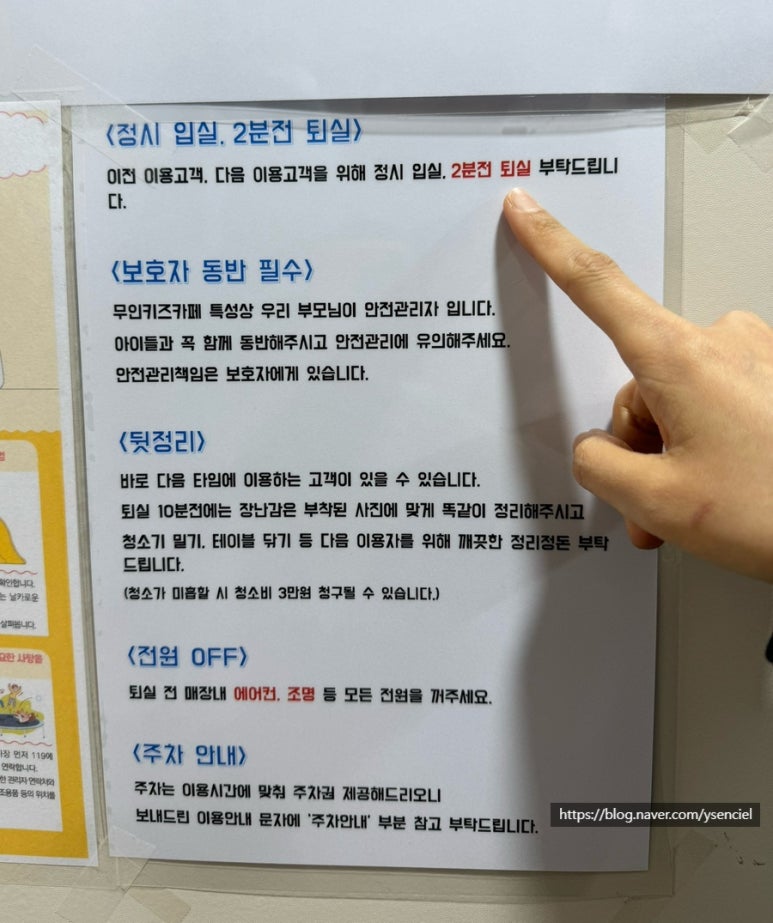 <정시 입실, 2분전 퇴실>
이전 이용고객, 다음 이용고객을 위해 정시 입실, 2분전 퇴실 부탁드립니
다.
<보호자 동반 필수>
무인키즈카페 특성상 우리 부모님이 안전관리자 입니다.
아이들과 꼭 함께 동반해주시고 안전관리에 유의해주세요.
안전관리책임은 보호자에게 있습니다.
<뒷정리>
바로 다음 타임에 이용하는 고객이 있을 수 있습니다.
퇴실 10분전에는 장난감은 부착된 사진에 맞게 똑같이 정리해주시고
청소기 밀기, 테이블 닦기 등 다음 이용자를 위해 깨끗한 정리정돈 부탁
드립니다.
(청소가 미흡할 시 청소비 3만원 청구될 수 있습니다.)
<전원 OFF>
퇴실 전 매장내 에어컨, 조명 등 모든 전원을 꺼주세요.
<주차 안내>
주차는 이용시간에 맞춰 주차권 제공해드리오니
보내드린 이용안내 문자에 '주차안내' 부분 참고 부탁드립니다.
확인합니다.
는 날카로운
살펴봅니다.
요한 사항들
장 먼저 119에
연락합니다.
한 관리자 연락처와
조용품 등의 위치를
https://blog.naver.com/ysenciel